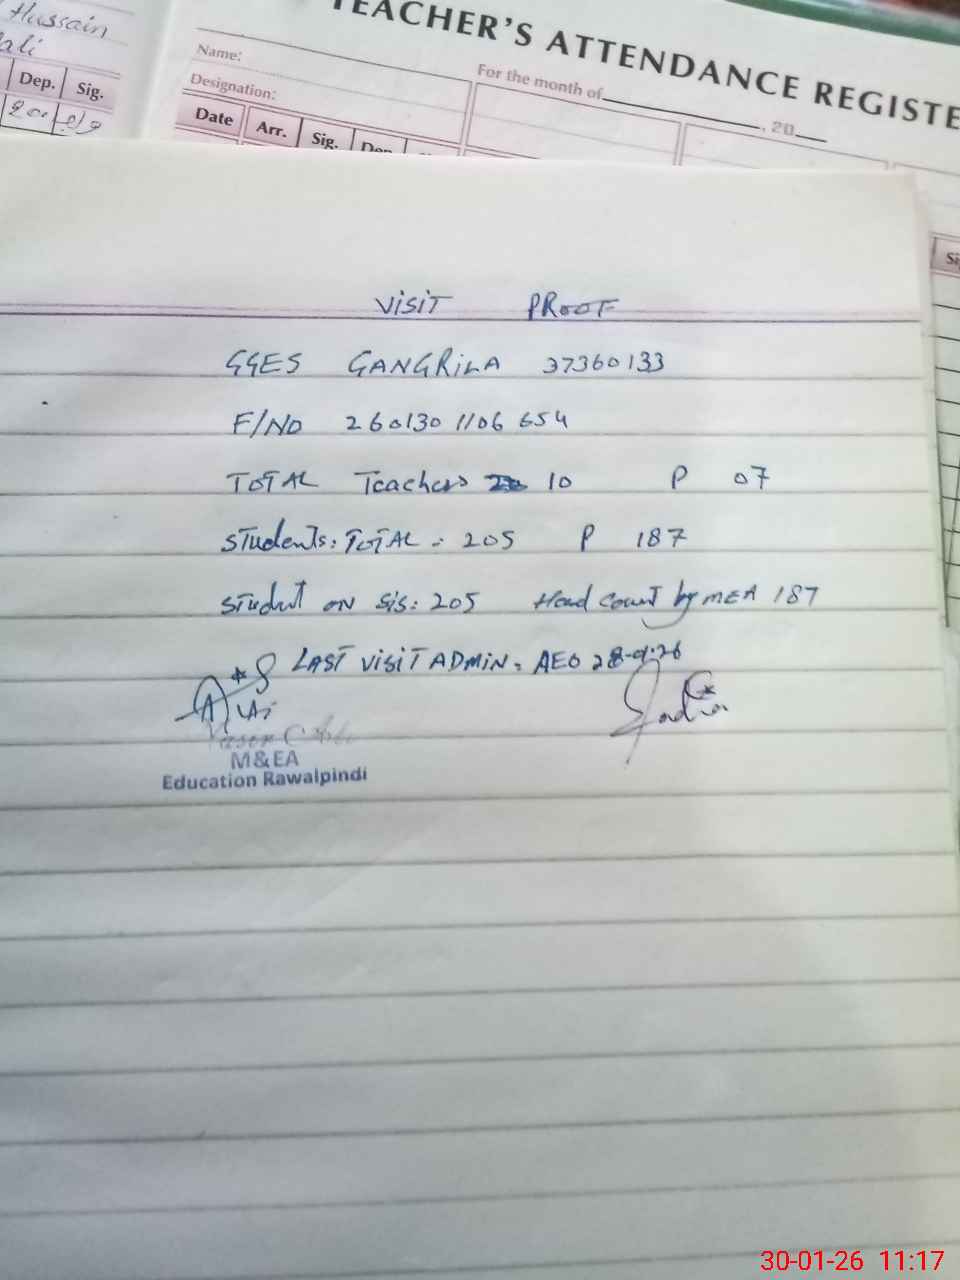 Hussain
ali
Dep. Sig.
TEACHER'S ATTENDANCE REGISTE
Name:
For the month of , 20
Designation:
Date Arr. Sig. Dep.
VISIT PROOF
GGES GANGRILA 37360133
F/NO 260130 1106 654
TOTAL Teachers 10 P 07
Students: TOTAL - 205 P 187
Student on SIS: 205 Head Count by MEA 187
LAST VISIT ADMIN: AEO
M&EA
Education Rawalpindi
30-01-26 11:17